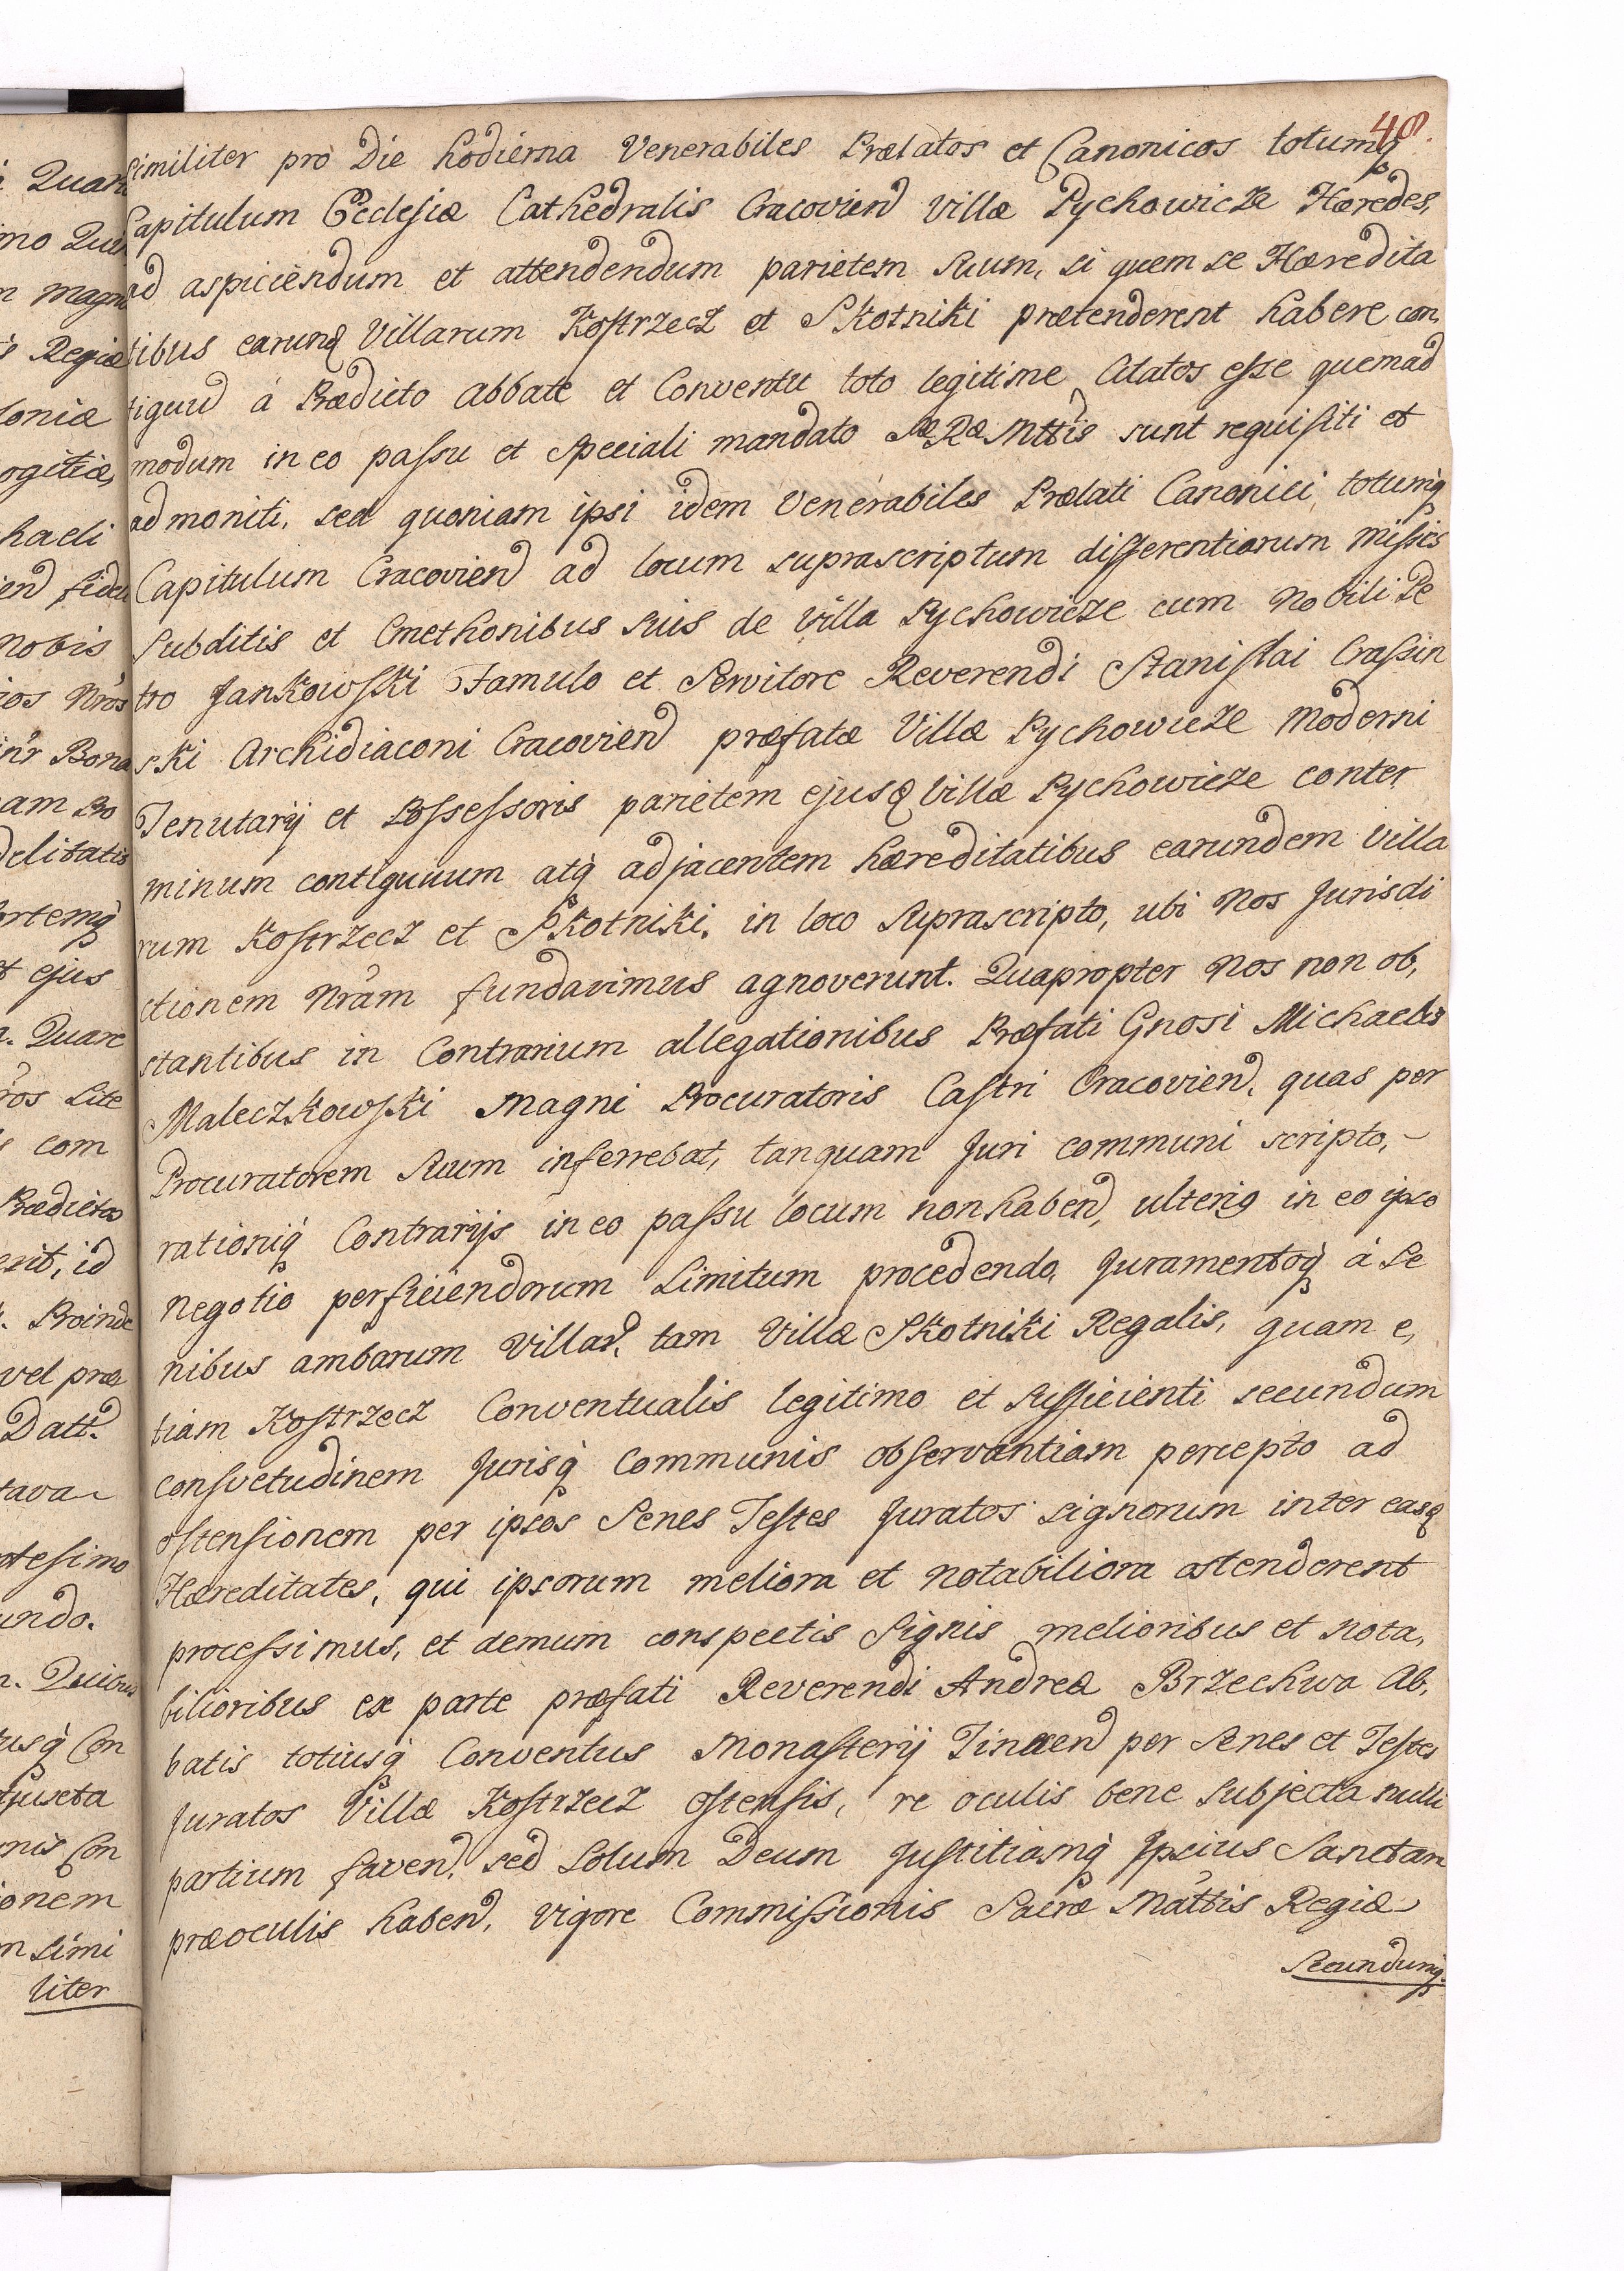 48.
similiter pro Die hodierna Venerabiles Prælatos et Canonicos totumq
Capitulum Ecclesiæ Cathedralis Cracovien Villæ Pychowicze Hæredes,
ad aspiciendum et attendendum parietem suum, si quem se Hæredita
tibus earund Villarum Kostrzecz et Skotniki prætenderent habere con,
tiguu á Prædicto Abbate et Conventu toto legitime Citatos esse quemad
modum in eo passu et speciali mandato SæRæMttis sunt requisiti et
admoniti, sed quoniam ipsi idem Venerabiles Prælati Canonici totumq
Capitulum Cracovien ad locum suprascriptum differentiarum missis
Subditis et Cmethonibus suis de Villa Pychowicze cum Nobili Pe
tro Jankowski Famulo et Servitore Reverendi Stanislai Crassin
ski Archidiaconi Cracovien præfatæ Villæ Pychowicze moderni
Tenutarij et Possessoris parietem ejusd Villæ Pychowicze conter
minum contiguuum atq adjacentem hæreditatibus earundem Villa
rum Kostrzecz et Skotniki, in loco suprascripto, ubi Nos Jurisdi
ctionem Nram fundavimus agnoverunt. Quapropter Nos non ob,
stantibus in Contrarium allegationibus Præfati Gnosi Michaelis
Maleczkowski Magni Procuratoris Castri Cracovien, quas per
Procuratorem suum inferrebat, tanquam Juri communi scripto,
rationiq Contrarijs in eo passu locum non haben, ulteriq in eo ipso
negotio perficiendorum Limitum procedendo, Juramentoq á Se
nibus ambarum Villar, tam Villæ Skotniki Regalis, quam e,
tiam Kostrzecz Conventualis legitimo et sufficienti secundum
consvetudinem Jurisq Communis observantiam percepto ad
ostensionem per ipsos Senes Testes Juratos signorum inter easd
Hæreditates, qui ipsorum meliora et notabiliora ostenderent
processimus, et demum conspectis Signis melioribus et nota,
bilioribus ex parte præfati Reverendi Andreæ Brzechwa Ab,
batis totiusq Conventus Monasterij Tinecen per Senes et Testes
Juratos Villæ Kostrzecz ostensis, re oculis bene subjecta nulli
partium faven, sed Solum Deum Justitiamq Ipsius Sanctam
præoculis haben, vigore Commissionis Sacræ Mattis Regiæ
Secundumq